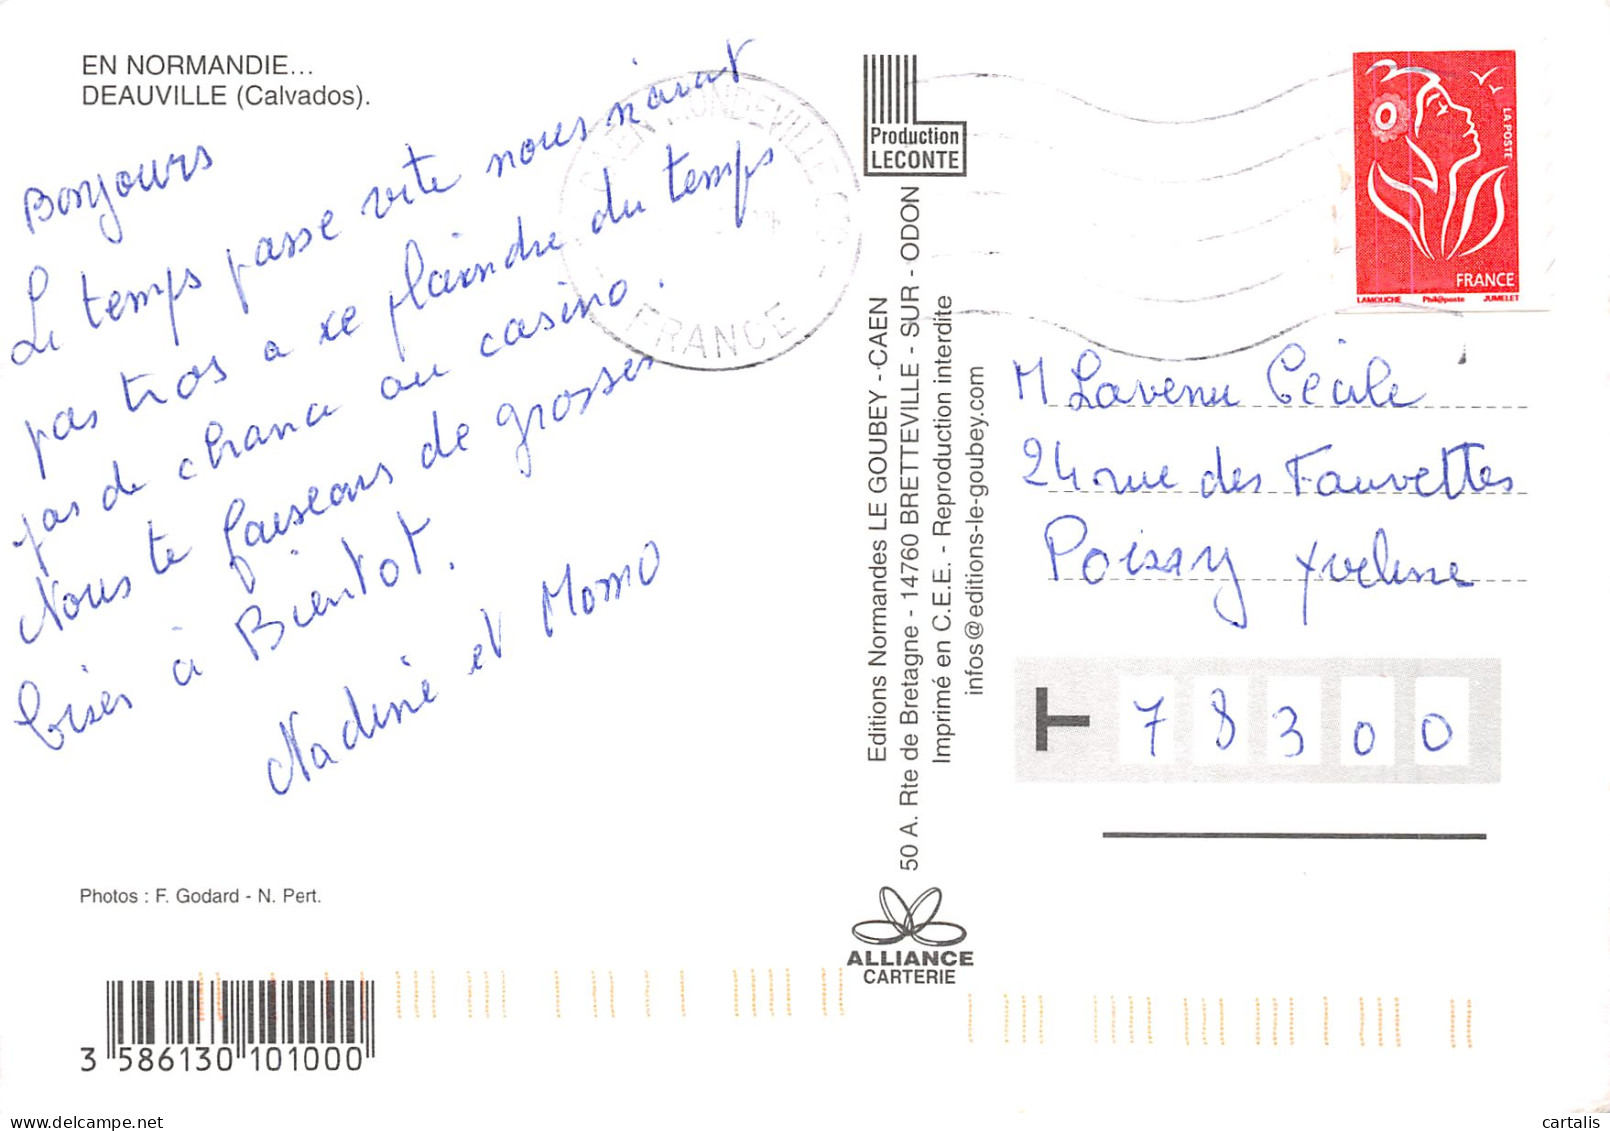 EN NORMANDIE...
DEAUVILLE (Calvados).
Bonjours
Le temps passe vite nous n'avont
pas tros a se plaindre du temps
pas de chance au casino.
Nous te faiseons de grosses
bises à Bientot.
Nadine et Momo
Photos : F. Godard - N. Pert.
3 586130 101000
Production
LECONTE
Editions Normandes LE GOUBEY - CAEN
50 A. Rte de Bretagne - 14760 BRETTEVILLE - SUR - ODON
Imprimé en C.E.E. - Reproduction interdite
infos@editions-le-goubey.com
ALLIANCE
CARTERIE
CAEN MONDEVILLE
FRANCE
LA POSTE
FRANCE
LAMOUCHE Phil@poste JUMELET
M Lavenu Cécile
24 rue des Fauvettes
Poissy Yveline
T 78300
cartalis
delcampe.net